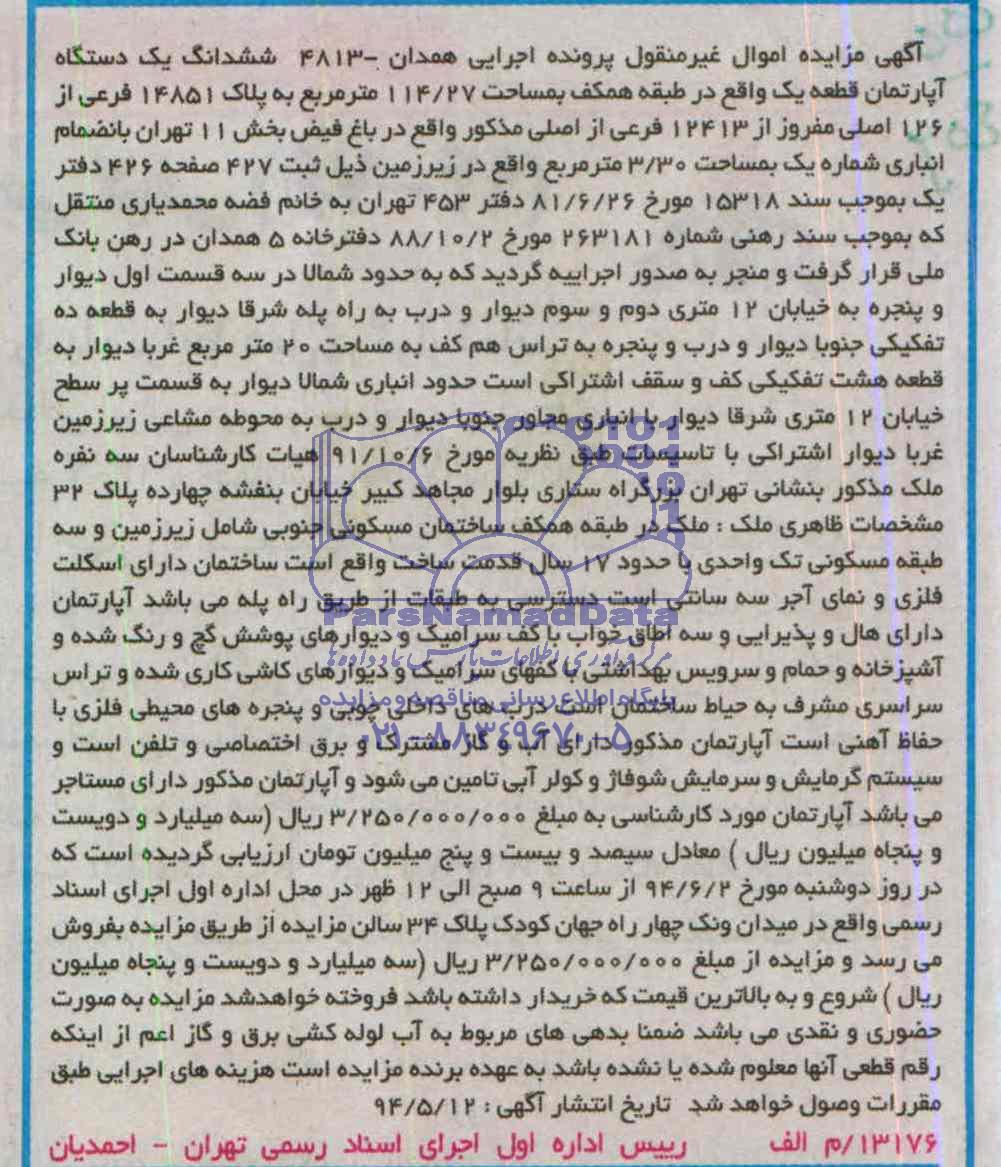 آگهی مزایده اموال غیرمنقول پرونده اجرایی همدان -۴۸۱۳ ششدانگ یک دستگاه
آپارتمان قطعه یک واقع در طبقه همکف بمساحت ۱۱۴/۲۷ مترمربع به پلاک ۱۴۸۵۱ فرعی از
۱۲۶ اصلی مفروز از ۱۲۴۱۳ فرعی از اصلی مذکور واقع در باغ فیض بخش ۱۱ تهران بانضمام
انباری شماره یک بمساحت ۳/۳۰ مترمربع واقع در زیرزمین ذیل ثبت ۴۲۷ صفحه ۴۲۶ دفتر
یک بموجب سند ۱۵۳۱۸ مورخ ۸۱/۶/۲۶ دفتر ۴۵۳ تهران به خانم فضه محمدیاری منتقل
که بموجب سند رهنی شماره ۲۶۳۱۸۱ مورخ ۸۸/۱۰/۲ دفترخانه ۵ همدان در رهن بانک
ملی قرار گرفت و منجر به صدور اجراییه گردید که به حدود شمالا در سه قسمت اول دیوار
و پنجره به خیابان ۱۲ متری دوم و سوم دیوار و درب به راه پله شرقا دیوار به قطعه ده
تفکیکی جنوبا دیوار و درب و پنجره به تراس هم کف به مساحت ۲۰ متر مربع غربا دیوار به
قطعه هشت تفکیکی کف و سقف اشتراکی است حدود انباری شمالا دیوار به قسمت پر سطح
خیابان ۱۲ متری شرقا دیوار با انباری مجاور جنوبا دیوار و درب به محوطه مشاعی زیرزمین
غربا دیوار اشتراکی با تاسیسات طبق نظریه مورخ ۹۱/۱۰/۶ هیات کارشناسان سه نفره
ملک مذکور بنشانی تهران بزرگراه ستاری بلوار مجاهد کبیر خیابان بنفشه چهارده پلاک ۳۲
مشخصات ظاهری ملک : ملک در طبقه همکف ساختمان مسکونی جنوبی شامل زیرزمین و سه
طبقه مسکونی تک واحدی با حدود ۱۷ سال قدمت ساخت واقع است ساختمان دارای اسکلت
فلزی و نمای آجر سه سانتی است دسترسی به طبقات از طریق راه پله می باشد آپارتمان
ParsNamadData
دارای هال و پذیرایی و سه اطاق خواب با کف سرامیک و دیوارهای پوشش گچ و رنگ شده و
مرکز فرآوری اطلاعات پارس نماد داده ها
آشپزخانه و حمام و سرویس بهداشتی با کفهای سرامیک و دیوارهای کاشی کاری شده و تراس
پایگاه اطلاع رسانی مناقصه و مزایده
سراسری مشرف به حیاط ساختمان است درب های داخلی چوبی و پنجره های محیطی فلزی با
۰۲۱-۸۸۳۴۹۶۷۰-۵
حفاظ آهنی است آپارتمان مذکور دارای آب و گاز مشترک و برق اختصاصی و تلفن است و
سیستم گرمایش و سرمایش شوفاژ و کولر آبی تامین می شود و آپارتمان مذکور دارای مستاجر
می باشد آپارتمان مورد کارشناسی به مبلغ ۳/۲۵۰/۰۰۰/۰۰۰ ریال (سه میلیارد و دویست
و پنجاه میلیون ریال ) معادل سیصد و بیست و پنج میلیون تومان ارزیابی گردیده است که
در روز دوشنبه مورخ ۹۴/۶/۲ از ساعت ۹ صبح الی ۱۲ ظهر در محل اداره اول اجرای اسناد
رسمی واقع در میدان ونک چهار راه جهان کودک پلاک ۳۴ سالن مزایده از طریق مزایده بفروش
می رسد و مزایده از مبلغ ۳/۲۵۰/۰۰۰/۰۰۰ ریال (سه میلیارد و دویست و پنجاه میلیون
ریال ) شروع و به بالاترین قیمت که خریدار داشته باشد فروخته خواهدشد مزایده به صورت
حضوری و نقدی می باشد ضمنا بدهی های مربوط به آب لوله کشی برق و گاز اعم از اینکه
رقم قطعی آنها معلوم شده یا نشده باشد به عهده برنده مزایده است هزینه های اجرایی طبق
مقررات وصول خواهد شد تاریخ انتشار آگهی : ۹۴/۵/۱۲
۱۳۱۷۶/م الف رییس اداره اول اجرای اسناد رسمی تهران - احمدیان